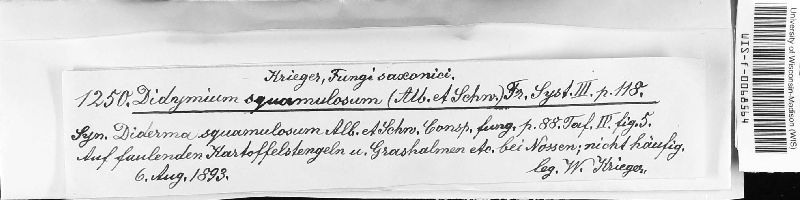 Krieger, Fungi saxonici.
1250. Didymium squamulosum (Alb. et Schw.) Fr. Syst. III. p. 118.
Syn. Diderma squamulosum Alb. et Schw. Consp. fung. p. 88. Taf. IV. fig. 5.
Auf faulenden Kartoffelstengeln u. Grashalmen etc. bei Nossen; nicht häufig.
6. Aug. 1893.
leg. W. Krieger.
University of Wisconsin-Madison (WIS)
WIS-f-0068564